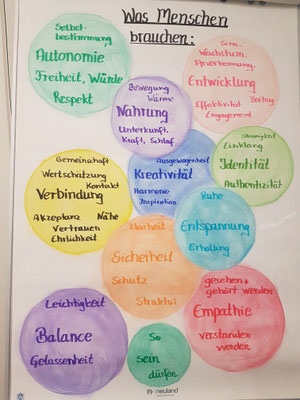 Was Menschen
brauchen:
Selbst-
bestimmung
Autonomie
Freiheit, Würde
Respekt
Sinn,
Wachstum,
Anerkennung,
Entwicklung
Effektivität Beitrag
Engagement
Bewegung
Wärme
Nahrung
Unterkunft,
Kraft, Schlaf
Stimmigkeit
Einklang
Identität
Authentizität
Ausgewogenheit
Kreativität
Harmonie
Inspiration
Gemeinschaft
Wertschätzung
Kontakt
Verbindung
Akzeptanz Nähe
Vertrauen
Ehrlichkeit
Ruhe
Entspannung
Erholung
Klarheit
Sicherheit
Schutz
Struktur
gesehen +
gehört werden
Empathie
verstanden
werden
Leichtigkeit
Balance
Gelassenheit
So
Sein
dürfen
neuland